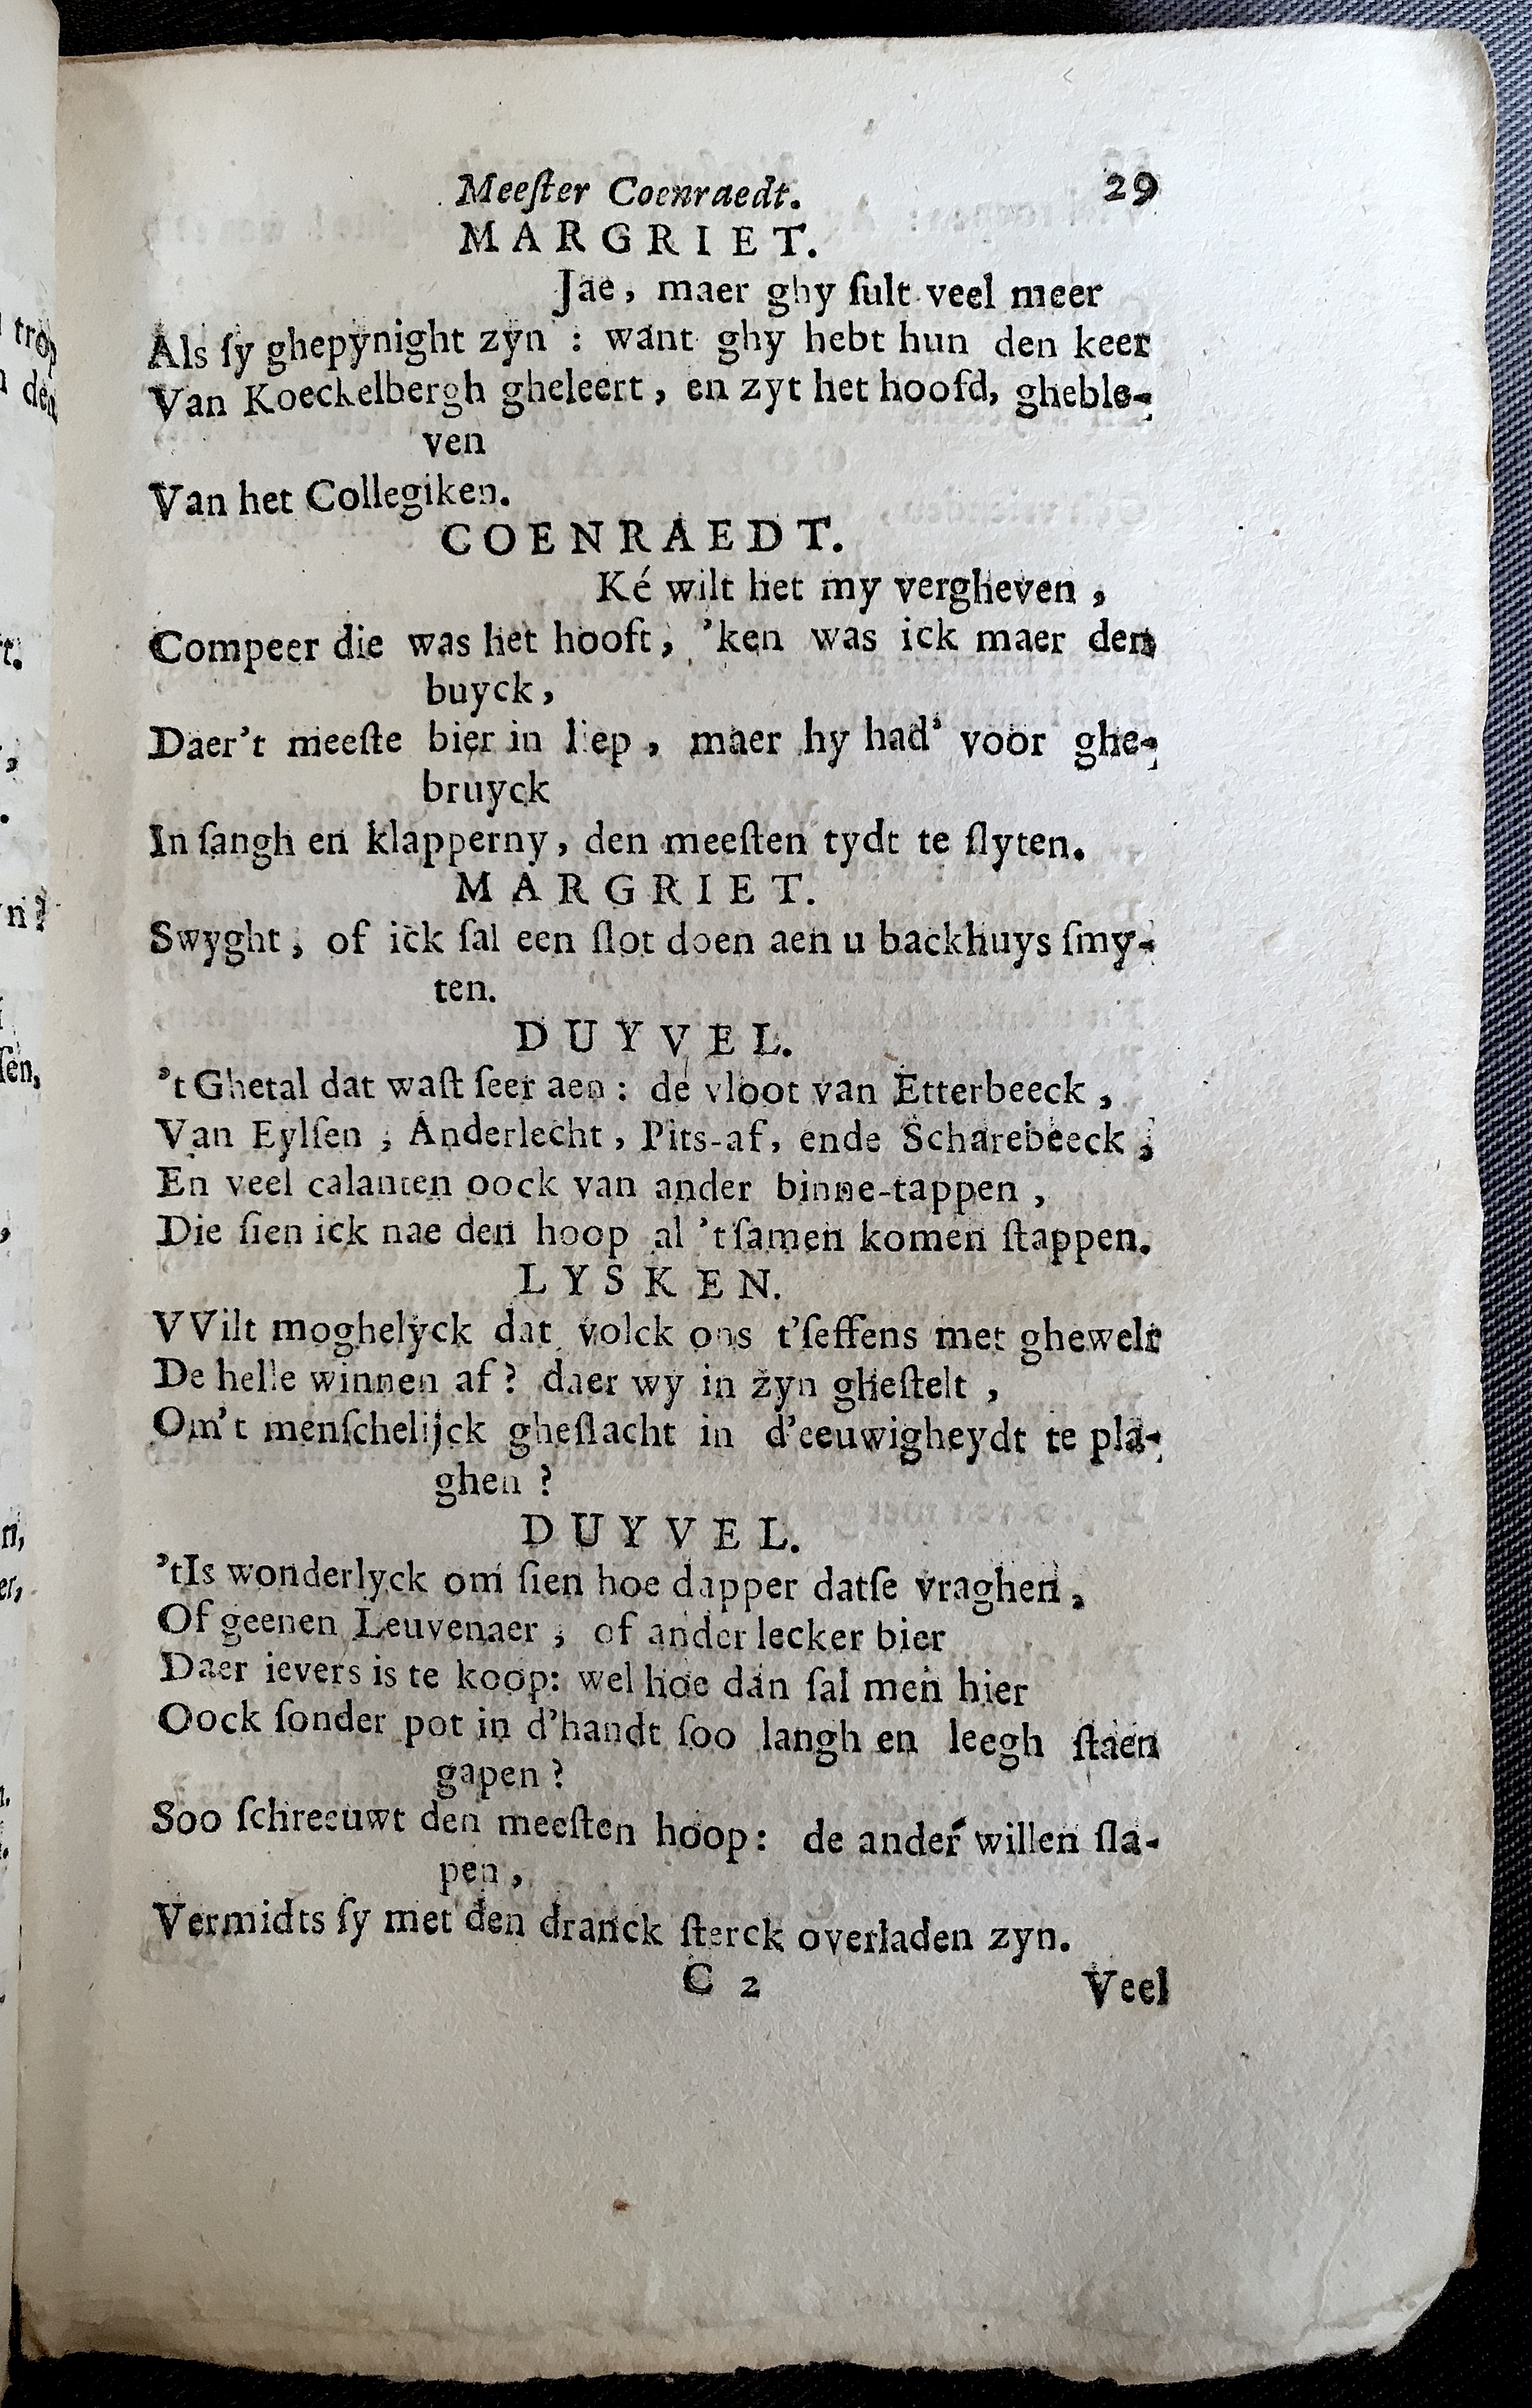 Meeſter Coenraedt. 29
MARGRIET.
Jae, maer ghy ſult veel meer
Als ſy ghepynight zyn : want ghy hebt hun den keer
Van Koeckelbergh gheleert, en zyt het hoofd, gheble-
ven
Van het Collegiken.
COENRAEDT.
Ké wilt het my vergheven,
Compeer die was het hooft, 'ken was ick maer den
buyck,
Daer't meeſte bier in liep, maer hy had' voor ghe-
bruyck
In ſangh en klapperny, den meeſten tydt te ſlyten.
MARGRIET.
Swyght, of ick ſal een ſlot doen aen u backhuys ſmy-
ten.
DUYVEL.
't Ghetal dat waſt ſeer aen: de vloot van Etterbeeck,
Van Eylſen, Anderlecht, Pits-af, ende Scharebeeck,
En veel calanten oock van ander binne-tappen,
Die ſien ick nae den hoop al 't ſamen komen ſtappen.
LYSKEN.
VVilt moghelyck dat volck ons t'ſeffens met ghewelt
De helle winnen af? daer wy in zyn gheſtelt,
Om't menſchelijck gheſlacht in d'eeuwigheydt te pla-
ghen?
DUYVEL.
'tIs wonderlyck om ſien hoe dapper datſe vraghen,
Of geenen Leuvenaer, of ander lecker bier
Daer ievers is te koop: wel hoe dan ſal men hier
Oock ſonder pot in d'handt ſoo langh en leegh ſtaen
gapen?
Soo ſchreeuwt den meeſten hoop: de ander willen ſla-
pen,
Vermidts ſy met den dranck ſterck overladen zyn.
C 2 Veel